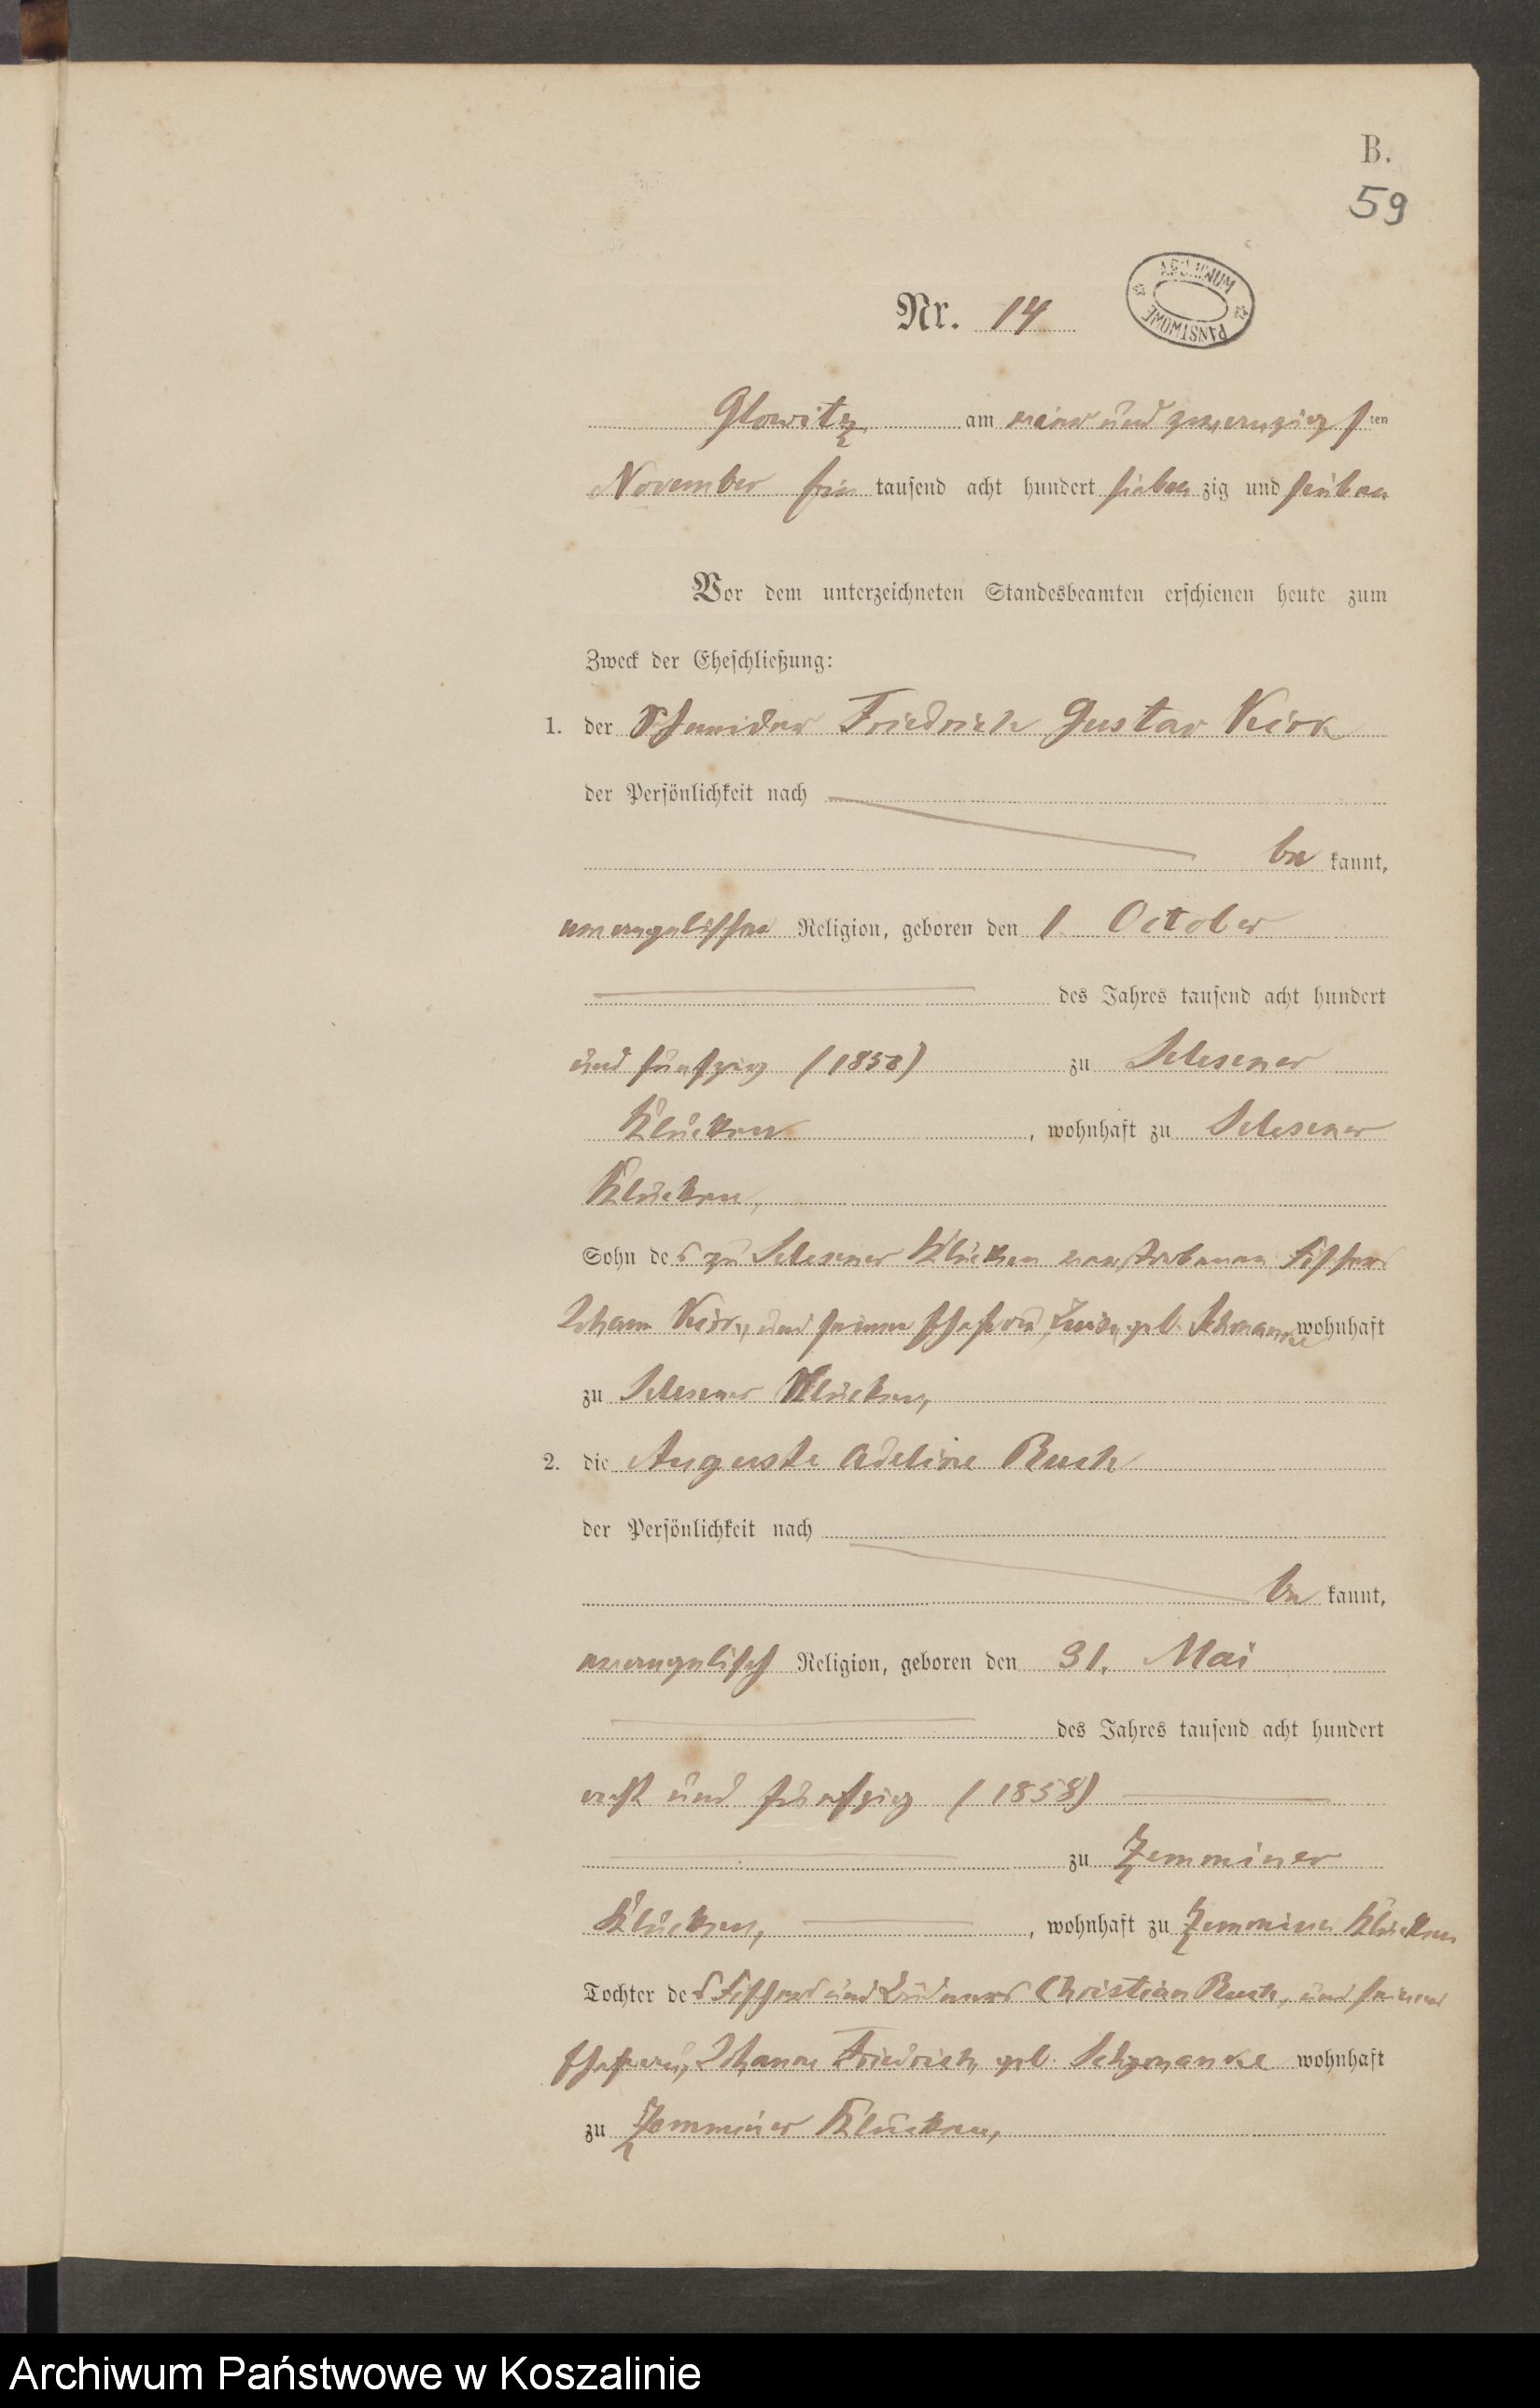 B.
59
Nr. 14
ARCHIWUM PAŃSTWOWE
Glowitz, am neun und zwanzigsten
November ein tausend acht hundert sieben zig und sieben
Vor dem unterzeichneten Standesbeamten erschienen heute zum
Zweck der Eheschließung:
1. der Schneider Friedrich Gustav Kirk
der Persönlichkeit nach
be kannt,
evangelischer Religion, geboren den 1. October
des Jahres tausend acht hundert
und fünfzig (1850) zu Selesener
Klücken, wohnhaft zu Selesener
Klücken,
Sohn des zu Selesener Klücken verstorbenen Fischers
Johann und seiner Ehefrau geb. wohnhaft
zu Selesener Klücken,
2. die Auguste Adeline Ruch
der Persönlichkeit nach
be kannt,
evangelisch Religion, geboren den 31. Mai
des Jahres tausend acht hundert
acht und fünfzig (1858)
zu Zemminer
Klücken, wohnhaft zu Zemminer Klücken
Tochter des Fischers und Büdners Christian Ruch, und seiner
Ehefrau, Johanne Friedrich, geb. wohnhaft
zu Zemminer Klücken,
Archiwum Państwowe w Koszalinie